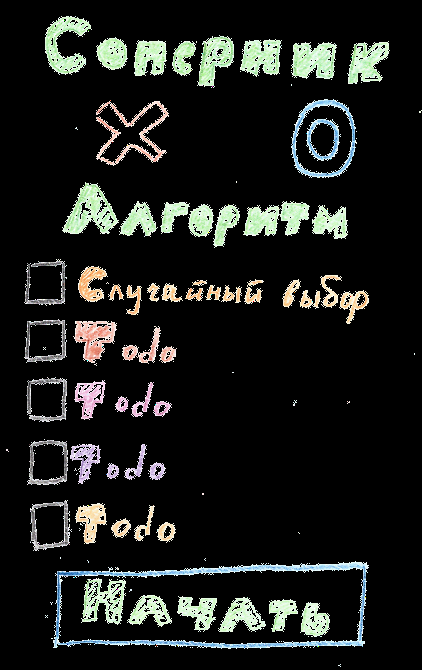 Соперник
X O
Алгоритм
Случайный выбор
Todo
Todo
Todo
Todo
Начать